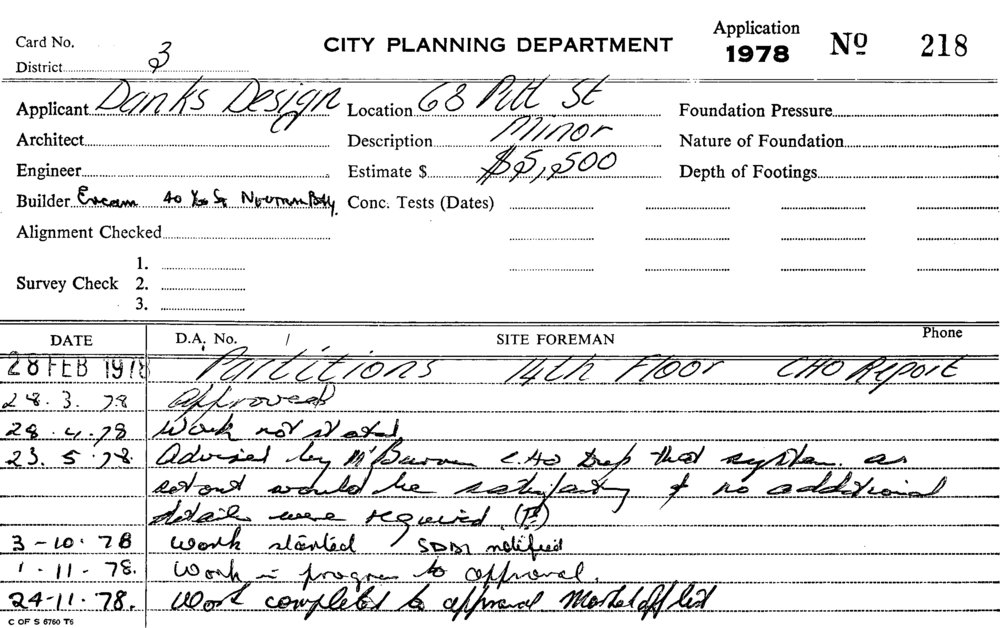 Card No.
District 3
CITY PLANNING DEPARTMENT
Application
1978
Nº 218
Applicant Danks Design
Location 68 Pitt St
Foundation Pressure
Architect
Description Minor
Nature of Foundation
Engineer
Estimate $ $5,500
Depth of Footings
Builder 40
Conc. Tests (Dates)
Alignment Checked
Survey Check
1.
2.
3.
DATE
D.A. No. /
SITE FOREMAN
Phone
28 FEB 1978 Partitions 14th Floor CHO Report
28.3.78 Approved
28.4.78 Work not stated
23.5.78. Advised by C.HO Dep that system as
setout would be satisfactory & no additional
details were required.
3-10.78 Work started SDBI notified
1-11-78. Work in progress to approval.
24-11-78. Work completed to approval Marked off list
C OF S 6760 T6